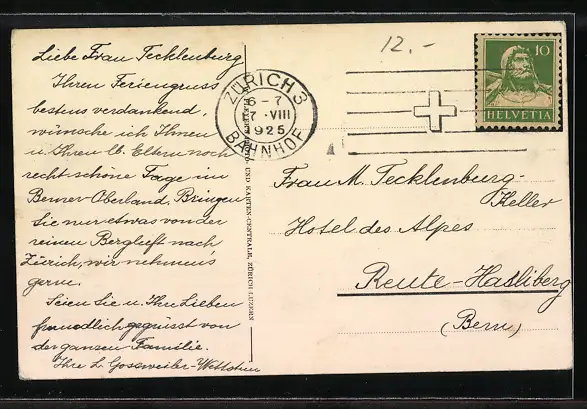 Liebe Frau Tecklenburg
Ihren Feriengruss
bestens verdankend,
wünsche ich Ihnen
u. Ihren lb. Eltern noch
recht schöne Tage im
Berner-Oberland. Bringen
Sie nur etwas von der
reinen Bergluft nach
Zürich, wir nehmen's
gerne.
Seien Sie u. Ihre Lieben
freundlich gegrüsst von
der ganzen Familie.
Ihre L. Gossweiler-Wettstein
UND KARTEN-CENTRALE, ZÜRICH-LUZERN
12.-
ZÜRICH 3
6-7
7.VIII
1925
BAHNHOF
10
HELVETIA
Frau M. Tecklenburg-
Keller
Hotel des Alpes
Reute-Hasliberg
(Bern)